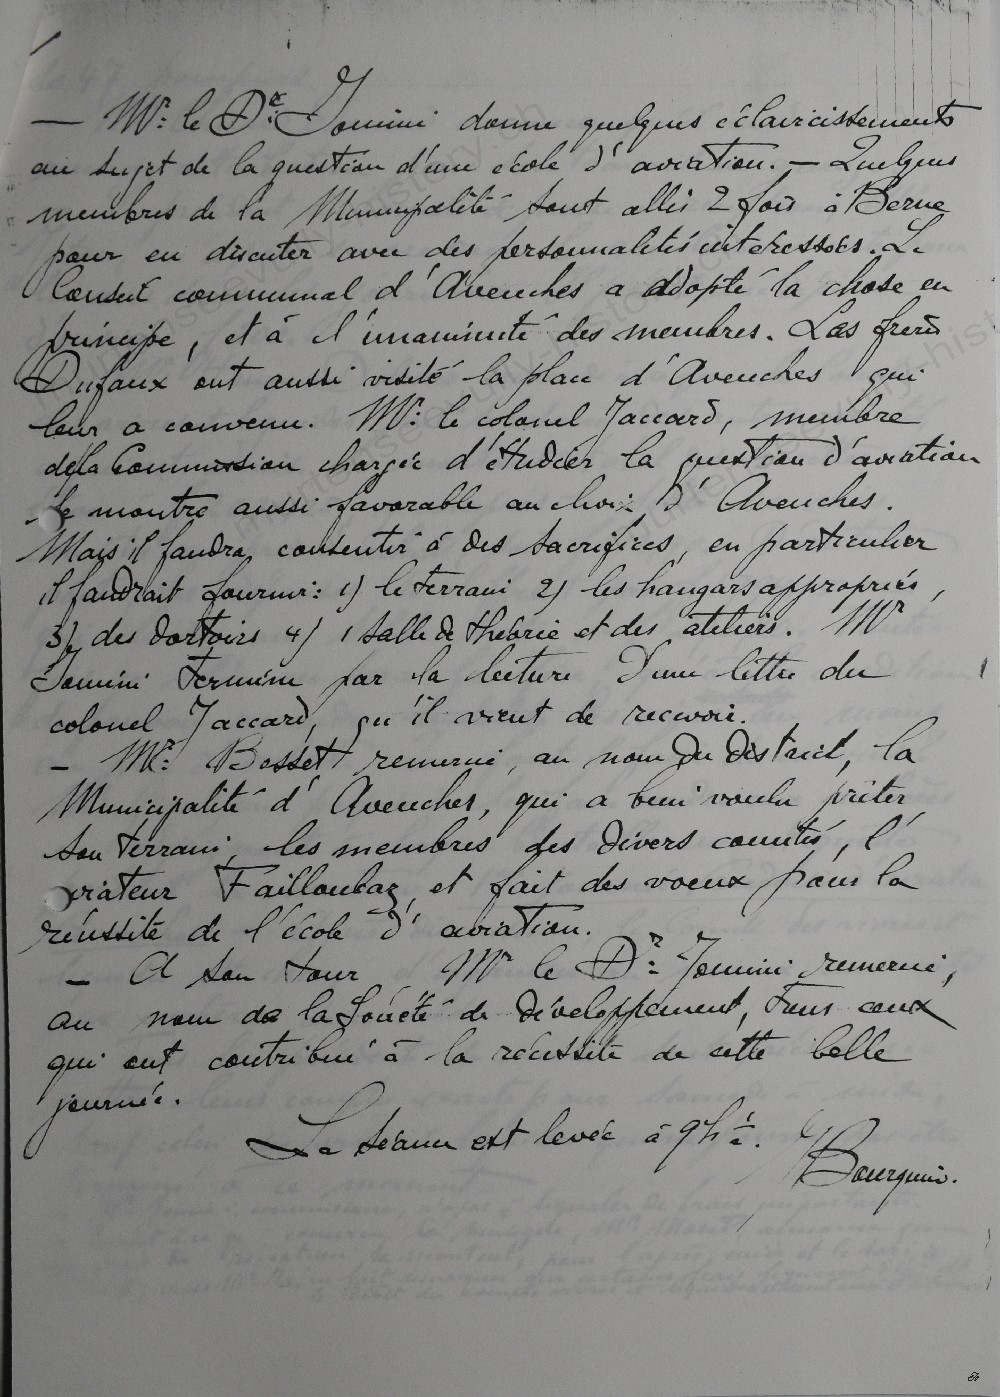 — Mr. le Dr. Jomini donne quelques éclaircissements
au sujet de la question d'une école d'aviation. — Quelques
membres de la Municipalité sont allés 2 fois à Berne
pour en discuter avec des personnalités intéressées. Le
Conseil communal d'Avenches a adopté la chose en
principe, et à l'unanimité des membres. Les frères
Dufaux ont aussi visité la place d'Avenches qui
leur a convenu. Mr. le colonel Jaccard, membre
de la Commission chargée d'étudier la question d'aviation
se montre aussi favorable au choix d'Avenches.
Mais il faudra consentir à des sacrifices, en particulier
il faudrait fournir: 1) le terrain 2) les hangars appropriés,
3) des dortoirs 4) 1 salle de théorie et des ateliers. Mr
Jomini termine par la lecture d'une lettre du
colonel Jaccard, qu'il vient de recevoir.
— Mr. Bosset remercie, au nom du district, la
Municipalité d'Avenches, qui a bien voulu prêter
son terrain, les membres des divers comités, l'
aviateur Failloubaz, et fait des voeux pour la
réussite de l'école d'aviation.
— A son tour Mr le Dr. Jomini remercie,
au nom de la Société de développement, tous ceux
qui ont contribué à la réussite de cette belle
journée.
La séance est levée à 9h ½.
Bourquin.